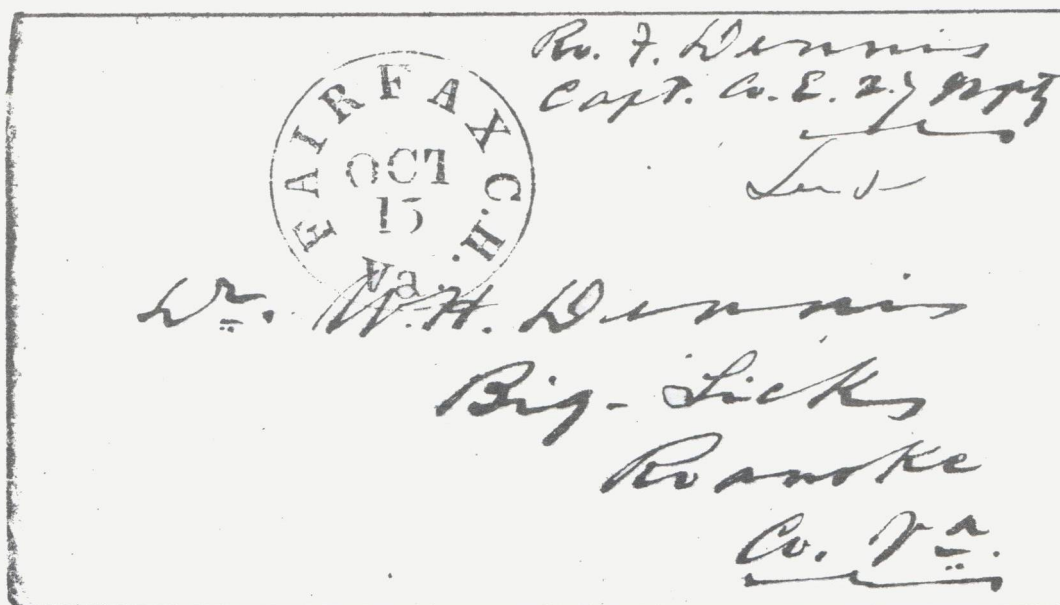 Ro. F. Dennis
Capt. Co. E. 27
FAIRFAX C.H.
OCT
15
Va.
Dr. W. H. Dennis
Big-Lick
Roanoke
Co. Va.